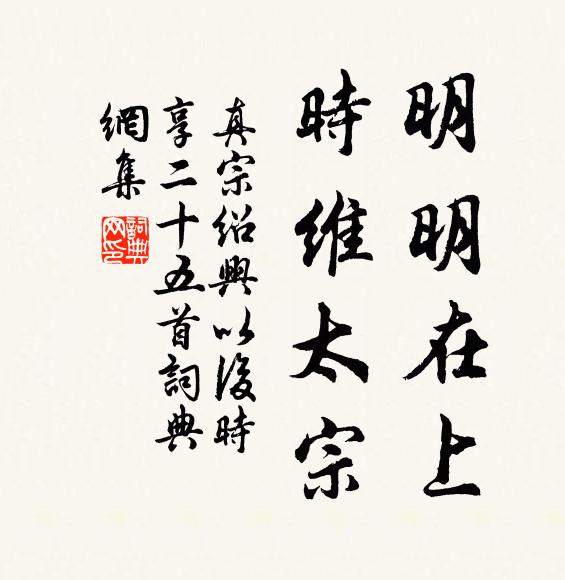 明明在上
時維太宗
真宗紹興以後時
享二十五首詞典
網集
詞典
网印